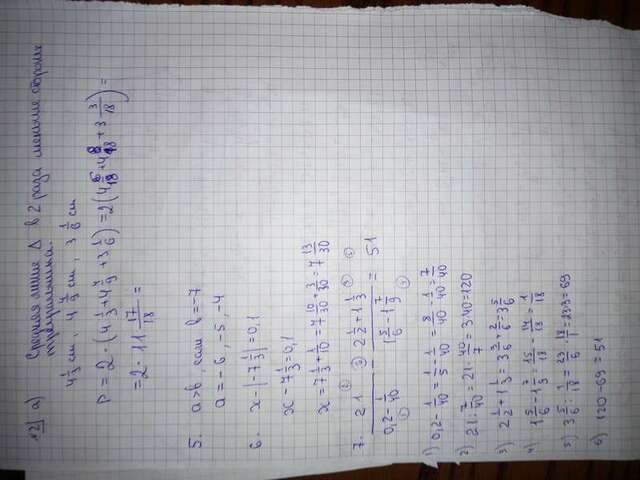 №2 а) Средняя линия Δ в 2 раза меньше стороны
треугольника.
4 1/3 см, 4 4/9 см, 3 1/6 см
P = 2 · (4 1/3 + 4 4/9 + 3 1/6) = 2(4 6/18 + 4 8/18 + 3 3/18) =
= 2 · 11 17/18 =
5. a>b, если b=-7
a = -6, -5, -4
6. x - |-7 1/3| = 0,1
x - 7 1/3 = 0,1
x = 7 1/3 + 1/10 = 7 10/30 + 3/30 = 7 13/30
7. 21 / (0,2 - 1/40) - (2 1/2 + 1 1/3) / (1 5/6 - 1 7/9) = 51
1) 0,2 - 1/40 = 1/5 - 1/40 = 8/40 - 1/40 = 7/40
2) 21 : 7/40 = 21 · 40/7 = 3·40 = 120
3) 2 1/2 + 1 1/3 = 3 3/6 + 2/6 = 3 5/6
4) 1 5/6 - 1 7/9 = 15/18 - 14/18 = 1/18
5) 3 5/6 : 1/18 = 23/6 · 18/1 = 23·3 = 69
6) 120 - 69 = 51